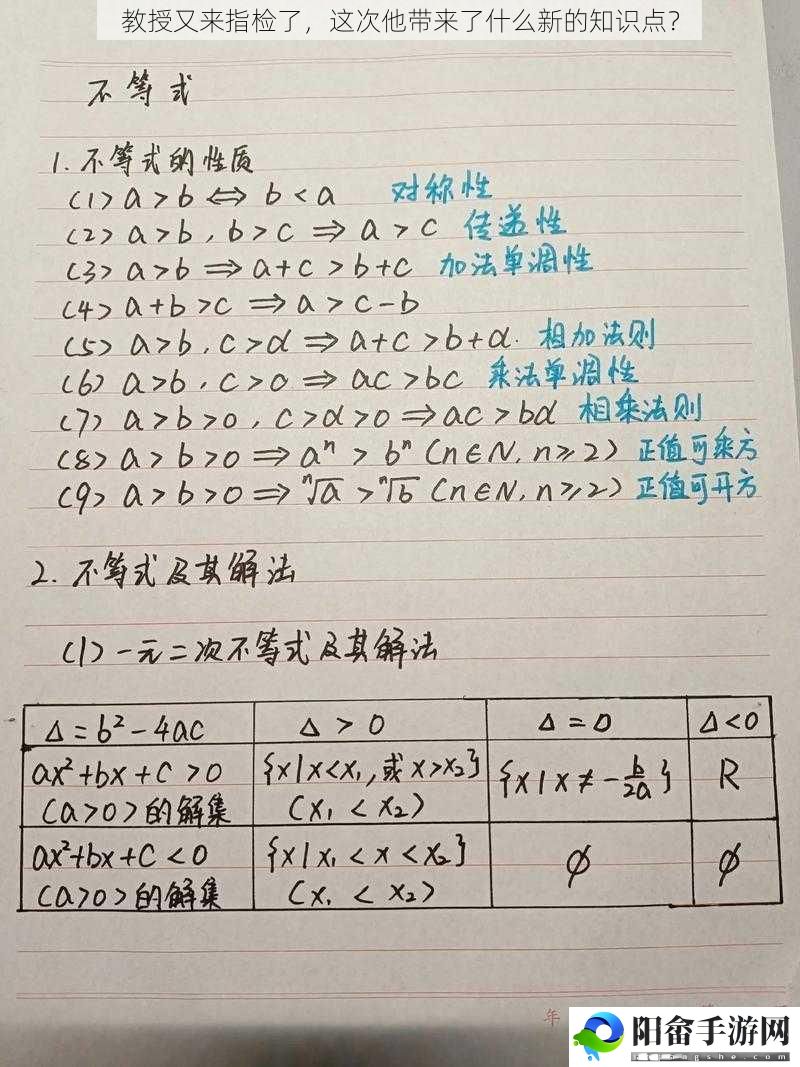 教授又来指检了，这次他带来了什么新的知识点？
不等式
1. 不等式的性质
(1) a > b ⇔ b < a 对称性
(2) a > b , b > c ⇒ a > c 传递性
(3) a > b ⇒ a + c > b + c 加法单调性
(4) a + b > c ⇒ a > c - b
(5) a > b , c > d ⇒ a + c > b + d. 相加法则
(6) a > b , c > 0 ⇒ ac > bc 乘法单调性
(7) a > b > 0 , c > d > 0 ⇒ ac > bd 相乘法则
(8) a > b > 0 ⇒ aⁿ > bⁿ (n∈N, n≥2) 正值可乘方
(9) a > b > 0 ⇒ ⁿ√a > ⁿ√b (n∈N, n≥2) 正值可开方
2. 不等式及其解法
(1) 一元二次不等式及其解法
Δ = b² - 4ac Δ > 0 Δ = 0 Δ < 0
ax² + bx + c > 0 {x | x < x₁, 或 x > x₂} {x | x ≠ - b/2a} R
(a > 0) 的解集 (x₁ < x₂)
ax² + bx + c < 0 {x | x₁ < x < x₂} ∅ ∅
(a > 0) 的解集 (x₁ < x₂)
年
阳畲手游网